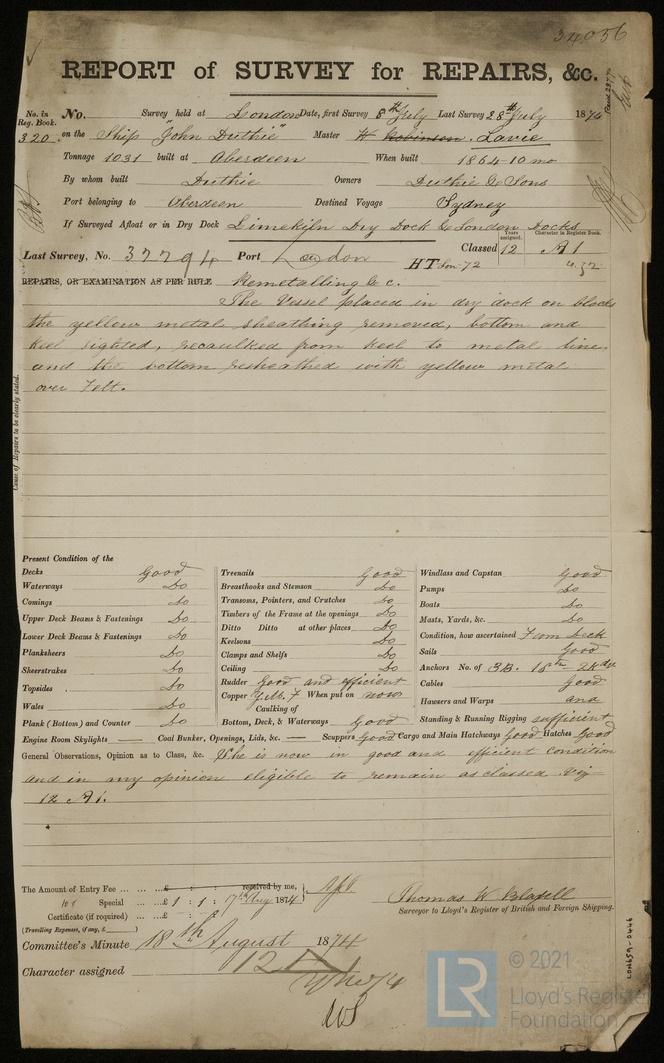 34056
REPORT of SURVEY for REPAIRS, &c.
No. in Reg. Book. No. Survey held at London Date, first Survey 8th July Last Survey 28th July 1874
320 on the Ship "John Duthie" Master W Robinson. Lavie
Tonnage 1031 built at Aberdeen When built 1864-10 mo
By whom built Duthie Owners Duthie & Sons
Port belonging to Aberdeen Destined Voyage Sydney
If Surveyed Afloat or in Dry Dock Limekiln Dry Dock & London Docks
Years assigned. Character in Register Book.
Last Survey, No. 37794 Port London Classed 12 A1
HT Lon 72
REPAIRS, OR EXAMINATION AS PER RULE Remetalling &c.
The Vessel placed in dry dock on blocks
the yellow metal sheathing removed, bottom and
keel sighted, recaulked from keel to metal line,
and the bottom resheathed with yellow metal
over Felt.
Cause of Repairs to be clearly stated.
Present Condition of the
Decks Good Treenails Good Windlass and Capstan Good
Waterways Do Breasthooks and Stemson Do Pumps Do
Comings Do Transoms, Pointers, and Crutches Do Boats Do
Upper Deck Beams & Fastenings Do Timbers of the Frame at the openings Do Masts, Yards, &c. Do
Lower Deck Beams & Fastenings Do Ditto Ditto at other places Do Condition, how ascertained From Deck
Planksheers Do Keelsons Do Sails Good
Sheerstrakes Do Clamps and Shelfs Do Anchors No. of 3B. 1St 2Kdge
Topsides Do Ceiling Do Cables Good
Wales Do Rudder Good and efficient Hawsers and Warps and
Copper Y.M. F When put on now
Caulking of
Plank (Bottom) and Counter Do Bottom, Deck, & Waterways Good Standing & Running Rigging sufficient
Engine Room Skylights — Coal Bunker, Openings, Lids, &c. — Scuppers Good Cargo and Main Hatchways Good Hatches Good
General Observations, Opinion as to Class, &c. She is now in good and efficient condition
and in my opinion eligible to remain as classed Viz
12 A1.
The Amount of Entry Fee ... ... ...£ : : received by me,
Special ... ...£ 1 : 1 : 17th Aug 1874
Certificate (if required) ... ...£ : :
(Travelling Expenses, if any, £ )
Thomas W Blabell
Surveyor to Lloyd's Register of British and Foreign Shipping.
Committee's Minute 18th August 1874
Character assigned 12 A1
LON659-0446
LR
© 2021
Lloyd's Register
Foundation